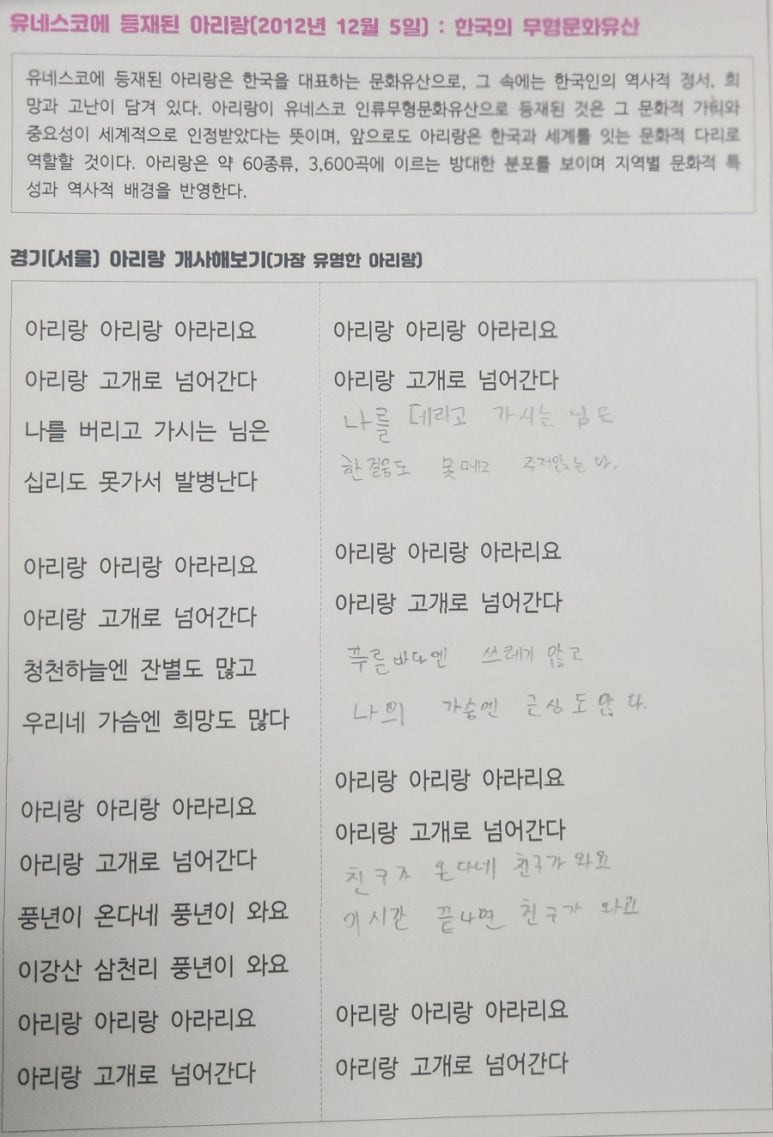 유네스코에 등재된 아리랑(2012년 12월 5일) : 한국의 무형문화유산
유네스코에 등재된 아리랑은 한국을 대표하는 문화유산으로, 그 속에는 한국인의 역사적 정서, 희
망과 고난이 담겨 있다. 아리랑이 유네스코 인류무형문화유산으로 등재된 것은 그 문화적 가치와
중요성이 세계적으로 인정받았다는 뜻이며, 앞으로도 아리랑은 한국과 세계를 잇는 문화적 다리로
역할할 것이다. 아리랑은 약 60종류, 3,600곡에 이르는 방대한 분포를 보이며 지역별 문화적 특
성과 역사적 배경을 반영한다.
경기(서울) 아리랑 개사해보기(가장 유명한 아리랑)
아리랑 아리랑 아라리요
아리랑 고개로 넘어간다
나를 버리고 가시는 님은
십리도 못가서 발병난다
아리랑 아리랑 아라리요
아리랑 고개로 넘어간다
청천하늘엔 잔별도 많고
우리네 가슴엔 희망도 많다
아리랑 아리랑 아라리요
아리랑 고개로 넘어간다
풍년이 온다네 풍년이 와요
이강산 삼천리 풍년이 와요
아리랑 아리랑 아라리요
아리랑 고개로 넘어간다
아리랑 아리랑 아라리요
아리랑 고개로 넘어간다
나를 데리고 가시는 님은
한걸음도 못떼고 주저앉는다.
아리랑 아리랑 아라리요
아리랑 고개로 넘어간다
푸른바다엔 쓰레기 많고
나의 가슴엔 근심도 많다.
아리랑 아리랑 아라리요
아리랑 고개로 넘어간다
친구가 온다네 친구가 와요
이시간 끝나면 친구가 와요
아리랑 아리랑 아라리요
아리랑 고개로 넘어간다